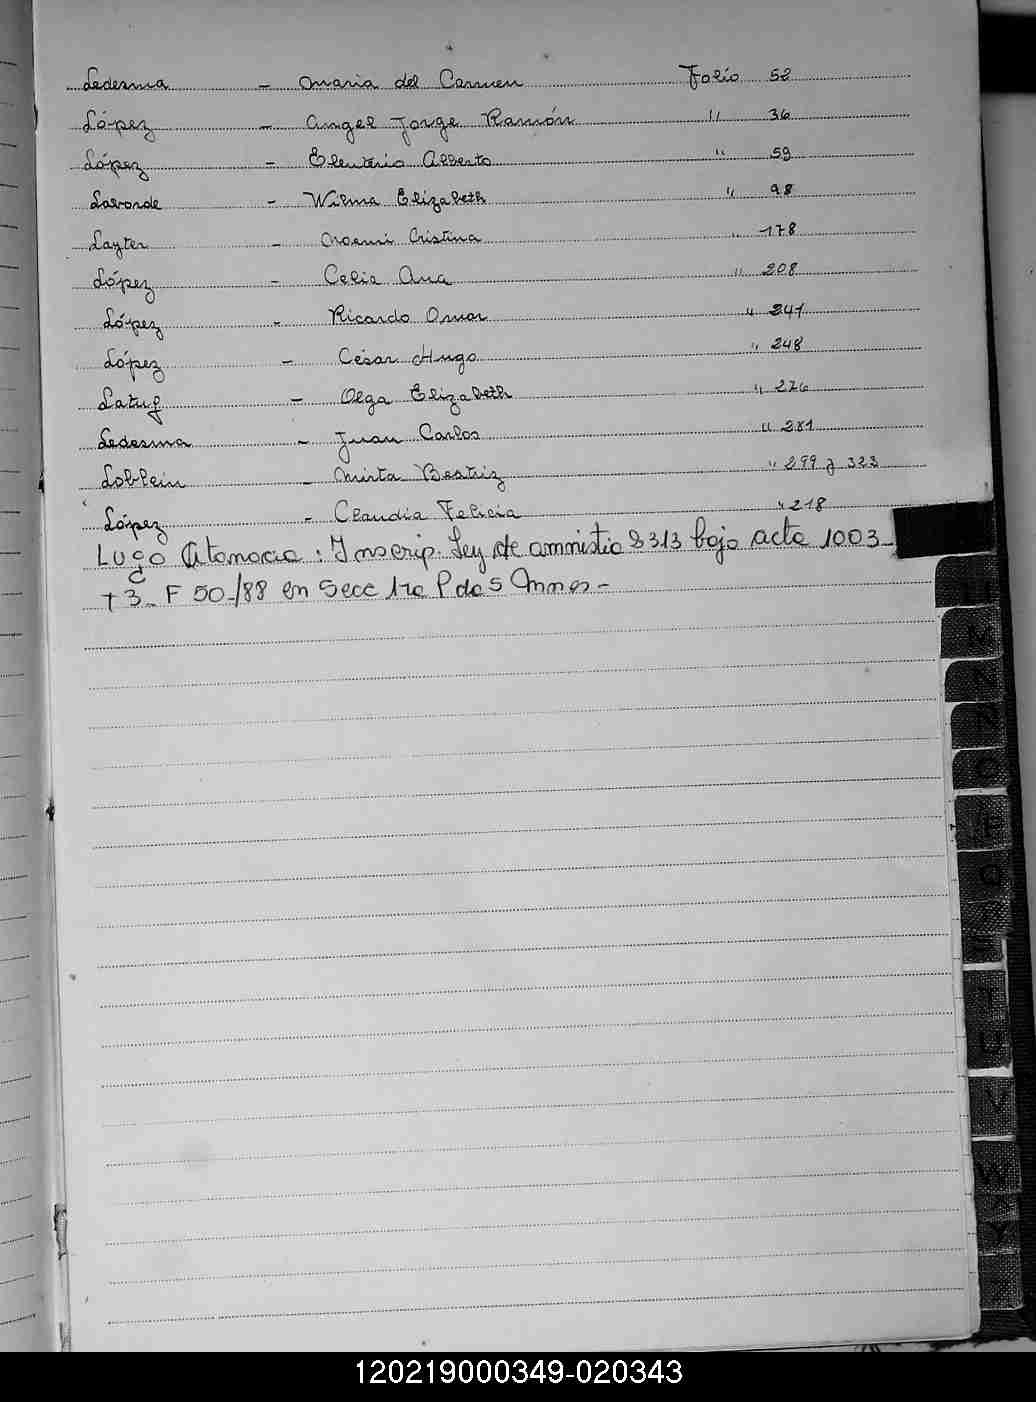 Ledesma - Maria del Carmen Folio 52
López - Angel Jorge Ramón " 36
López - Eleuterio Alberto " 59
Laborde - Wilma Elizabeth " 98
Layter - Noemi Cristina " 178
López - Celia Ana " 208
López - Ricardo Omar " 241
López - César Hugo " 248
Latuf - Olga Elizabeth " 276
Ledesma - Juan Carlos " 281
Loblein - Mirta Beatriz " 299 y 323
López - Claudia Felicia " 218
Lugo Atanacia : Inscrip. Ley de amnistia 8313 bajo acta 1003-
T 3- F 50-/88 en Secc 1ra P dos
M
N
Ñ
O
P
Q
T
U
V
W
Y
120219000349-020343